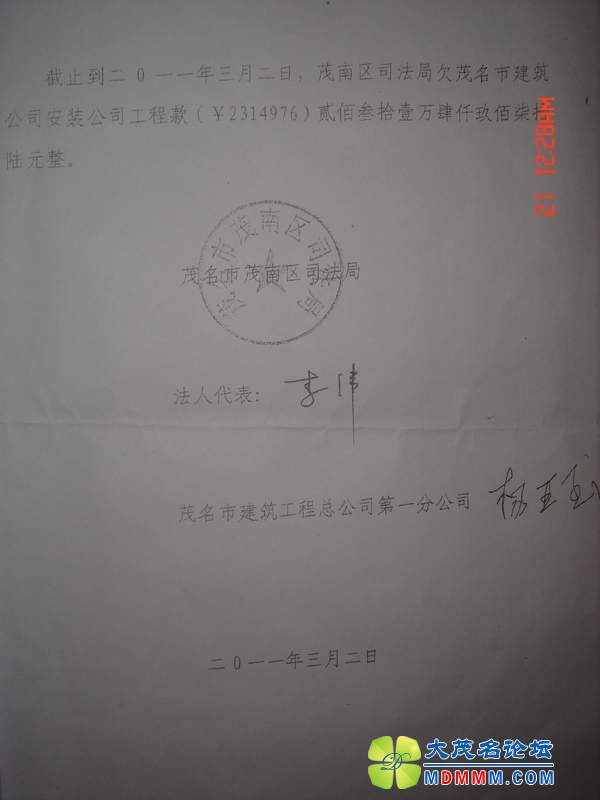 截止到二0一一年三月二日，茂南区司法局欠茂名市建筑
公司安装公司工程款（￥2314976）贰佰叁拾壹万肆仟玖佰柒拾
陆元整。
21 12:28AM
茂名市茂南区司法局
茂名市茂南区司法局
法人代表：李伟
茂名市建筑工程总公司第一分公司
二0一一年三月二日
大茂名论坛
MDMMM.COM